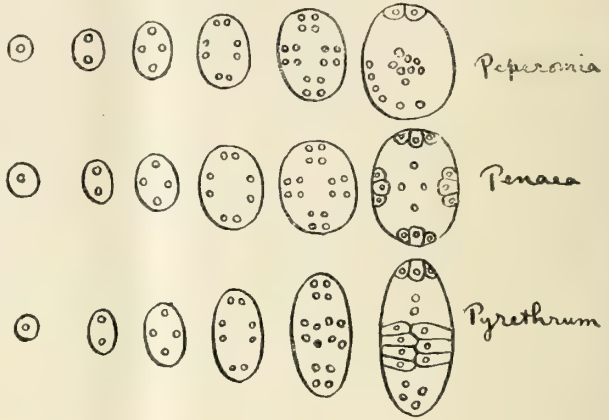 Peperomia
Penaea
Pyrethrum